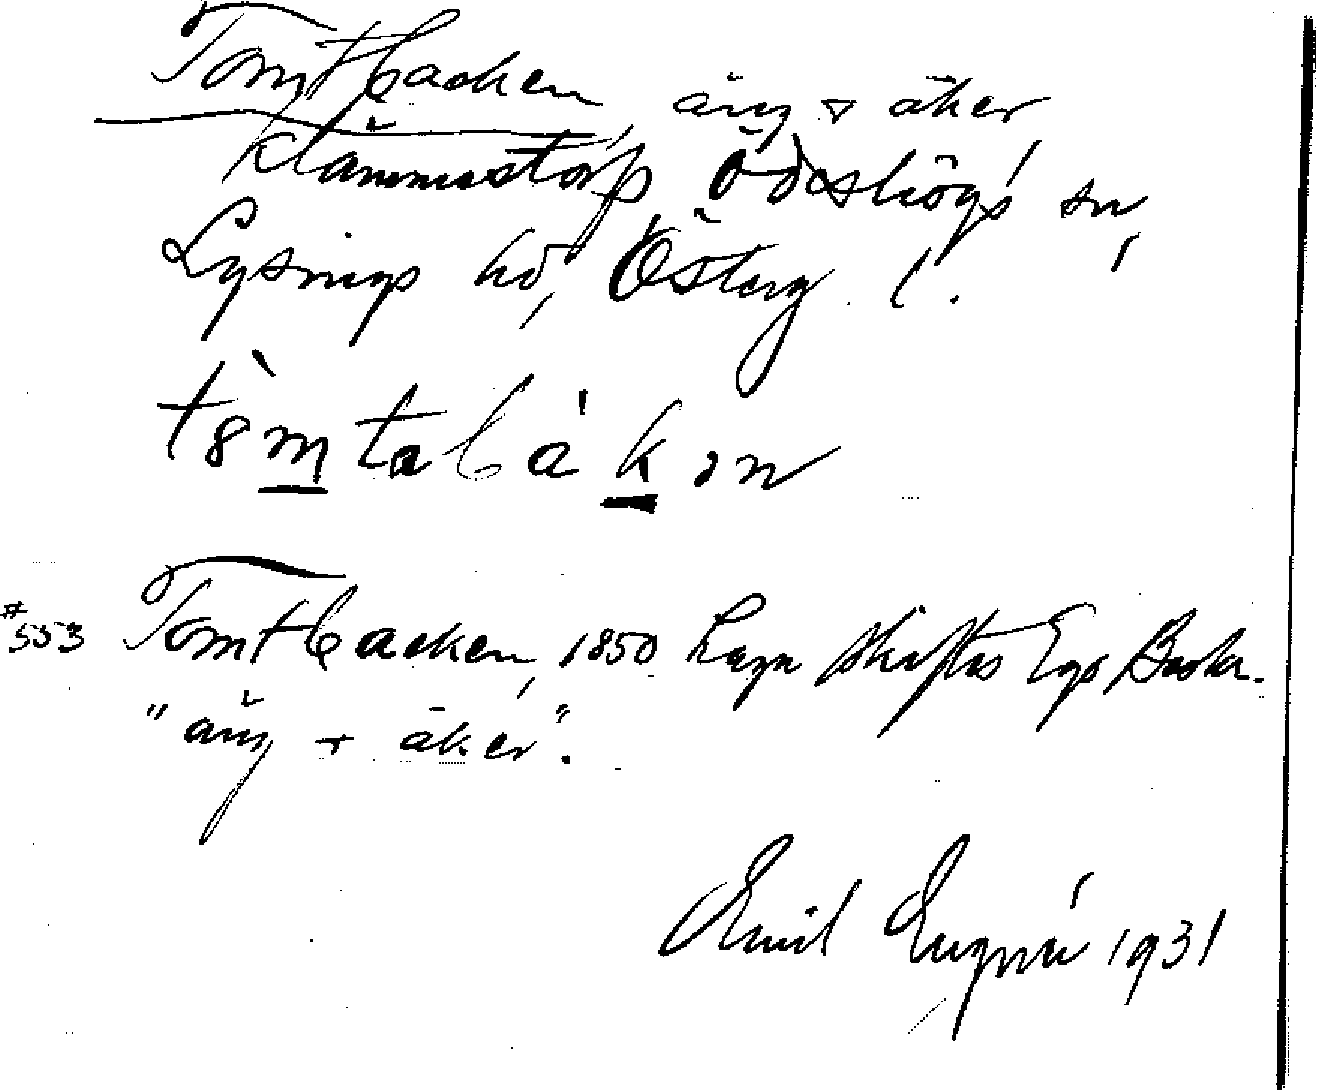 Tomtbacken äng + åker
Klämmestorp, Ödeshögs sn,
Lysings hd, Österg. l.
tòmtabàkən
#553 Tomtbacken, 1850 Laga skiftes Ego Beskr.
"äng + åker".
Emil 1931